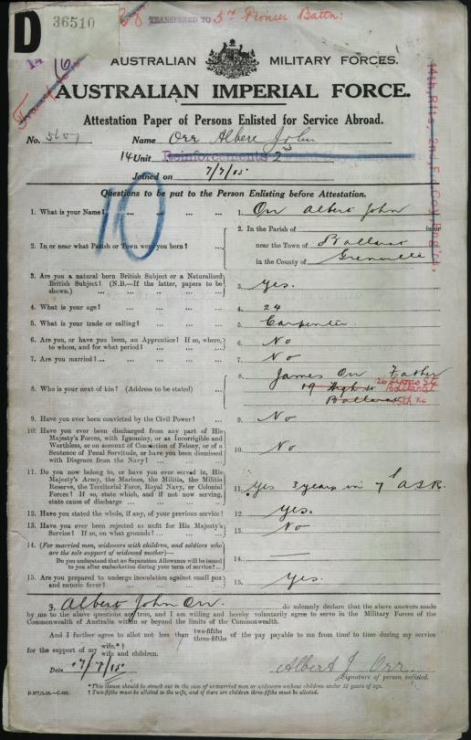 D
36510
TRANSFERRED TO 5th Pioneer Battn:
AUSTRALIAN MILITARY FORCES.
AUSTRALIAN IMPERIAL FORCE.
Attestation Paper of Persons Enlisted for Service Abroad.
No. Name Orr Albert John
14 Unit Reinforcements 2nd
Joined on 7/7/15
10
Questions to be put to the Person Enlisting before Attestation.
1. What is your Name? ... 1. Orr Albert John
2. In or near what Parish or Town were you born? ... 2. In the Parish of in
near the Town of Ballarat
in the County of Grenville
3. Are you a natural born British Subject or a Naturalized
British Subject? (N.B.—If the latter, papers to be
shown.) ... 3. Yes.
4. What is your age? ... 4. 24
5. What is your trade or calling? ... 5. Carpenter
6. Are you, or have you been, an Apprentice? If so, where,
to whom, and for what period? ... 6. No
7. Are you married? ... 7. No
8. Who is your next of kin? (Address to be stated) ... 8. James Orr Father
19 High St
Ballarat
9. Have you ever been convicted by the Civil Power? ... 9. No
10. Have you ever been discharged from any part of His
Majesty's Forces, with Ignominy, or as Incorrigible and
Worthless, or on account of Conviction of Felony, or of a
Sentence of Penal Servitude, or have you been dismissed
with Disgrace from the Navy? ... 10. No
11. Do you now belong to, or have you ever served in, His
Majesty's Army, the Marines, the Militia, the Militia
Reserve, the Territorial Force, Royal Navy, or Colonial
Forces? If so, state which, and if not now serving,
state cause of discharge ... 11. Yes 3 years in 7th
12. Have you stated the whole, if any, of your previous service? 12. Yes.
13. Have you ever been rejected as unfit for His Majesty's
Service? If so, on what grounds? ... 13. No
14. (For married men, widowers with children, and soldiers who
are the sole support of widowed mother—
Do you understand that no Separation Allowance will be issued
to you after embarkation during your term of service? ... 14.
15. Are you prepared to undergo inoculation against small pox
and enteric fever? ... 15. Yes.
I, Albert John Orr do solemnly declare that the above answers made
by me to the above questions are true, and I am willing and hereby voluntarily agree to serve in the Military Forces of the
Commonwealth of Australia within or beyond the limits of the Commonwealth.
And I further agree to allot not less than two-fifths three-fifths of the pay payable to me from time to time during my service
for the support of my wife,* wife and children.
Date 7/7/15 Albert J Orr.
Signature of person enlisted.
*This clause should be struck out in the case of unmarried men or widowers without children under 18 years of age.
† Two-fifths must be allotted to the wife, and if there are children three-fifths must be allotted.